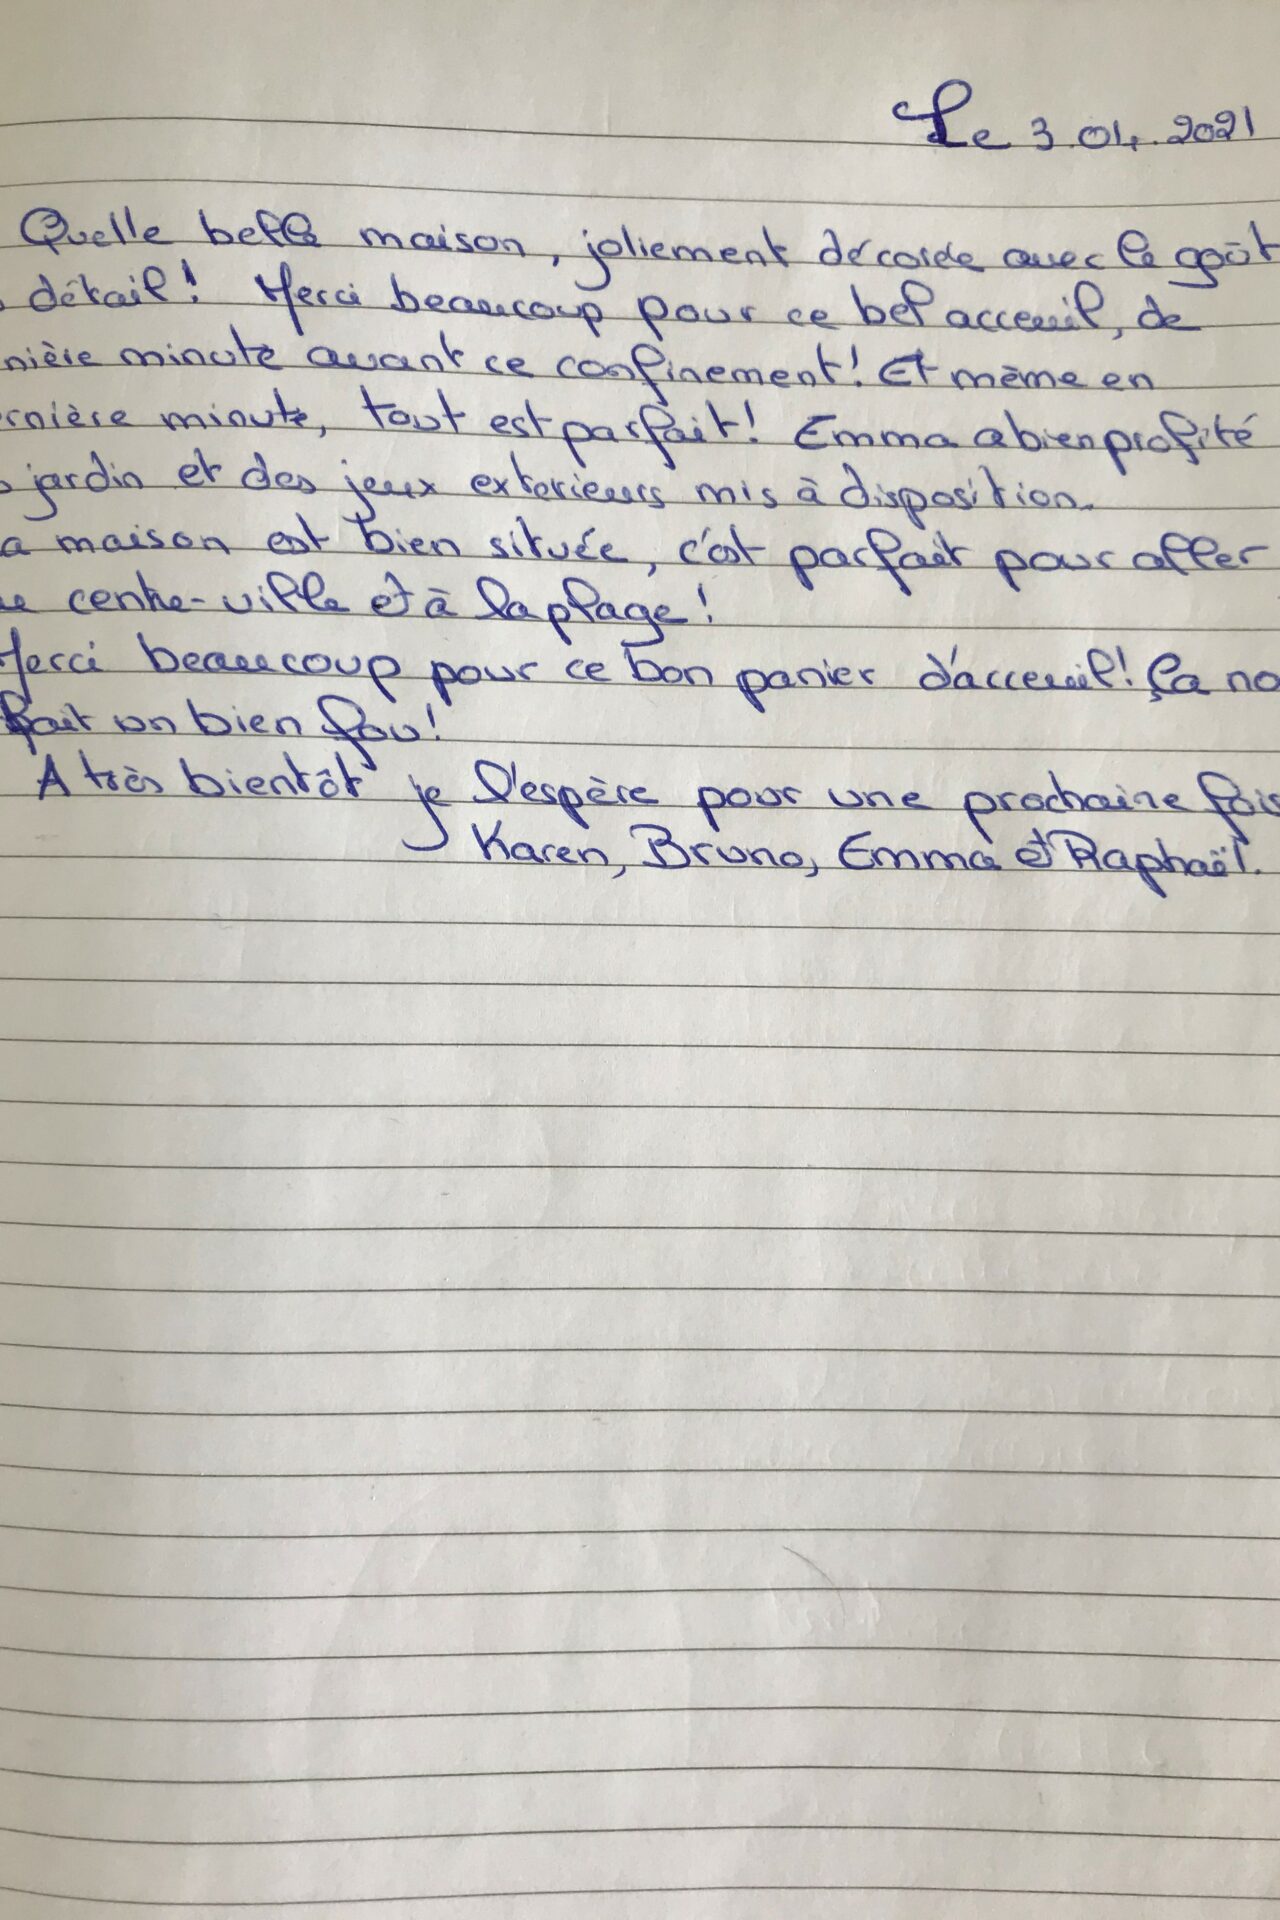 Le 3.04.2021
Quelle belle maison, joliement décorée avec le goût
détail! Merci beaucoup pour ce bel acceuil, de
nière minute avant ce confinement! Et même en
rnière minute, tout est parfait! Emma a bien profité
jardin et des jeux exterieurs mis à disposition.
a maison est bien située, c'est parfait pour aller
centre-ville et à la plage!
Merci beaucoup pour ce bon panier d'acceuil! Ça no
fait un bien fou!
A très bientôt je l'espère pour une prochaine fois
Karen, Bruno, Emma et Raphaël.